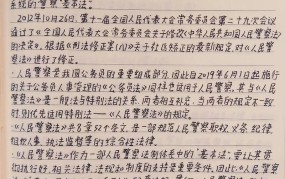 系统的"警察"基本法。
2012年10月26日,第十一届全国人民代表大会常务委员会第二十九次会议
通过了《全国人民代表大会常务委员会关于修改〈中华人民共和国人民警察法〉
的决定》,根据《刑法修正案(八)》关于社区矫正的最新规定,对《人民警
察法》进行了修正。
·人民警察是我国公务员的重要组成部分,因此自2019年6月1日起施行
的关于公务员人事管理的《公务员法》同样也适用于人民警察,其与《人民警
察法》是一般法与特别法的关系,两者相互补充,当两者的规定不一致
时,则优先适用特别法——《人民警察法》的规定。
《人民警察法》共8章52个条文,是一部规范人民警察职权、义务、纪律、
组织人事、执法监督等的综合性法律。
·《人民警察法》作为一部人民警察法制体系中的"基本法",要让其贯
彻执行好,相关法律、法规和制度的支持是重要条件,因此《人民警